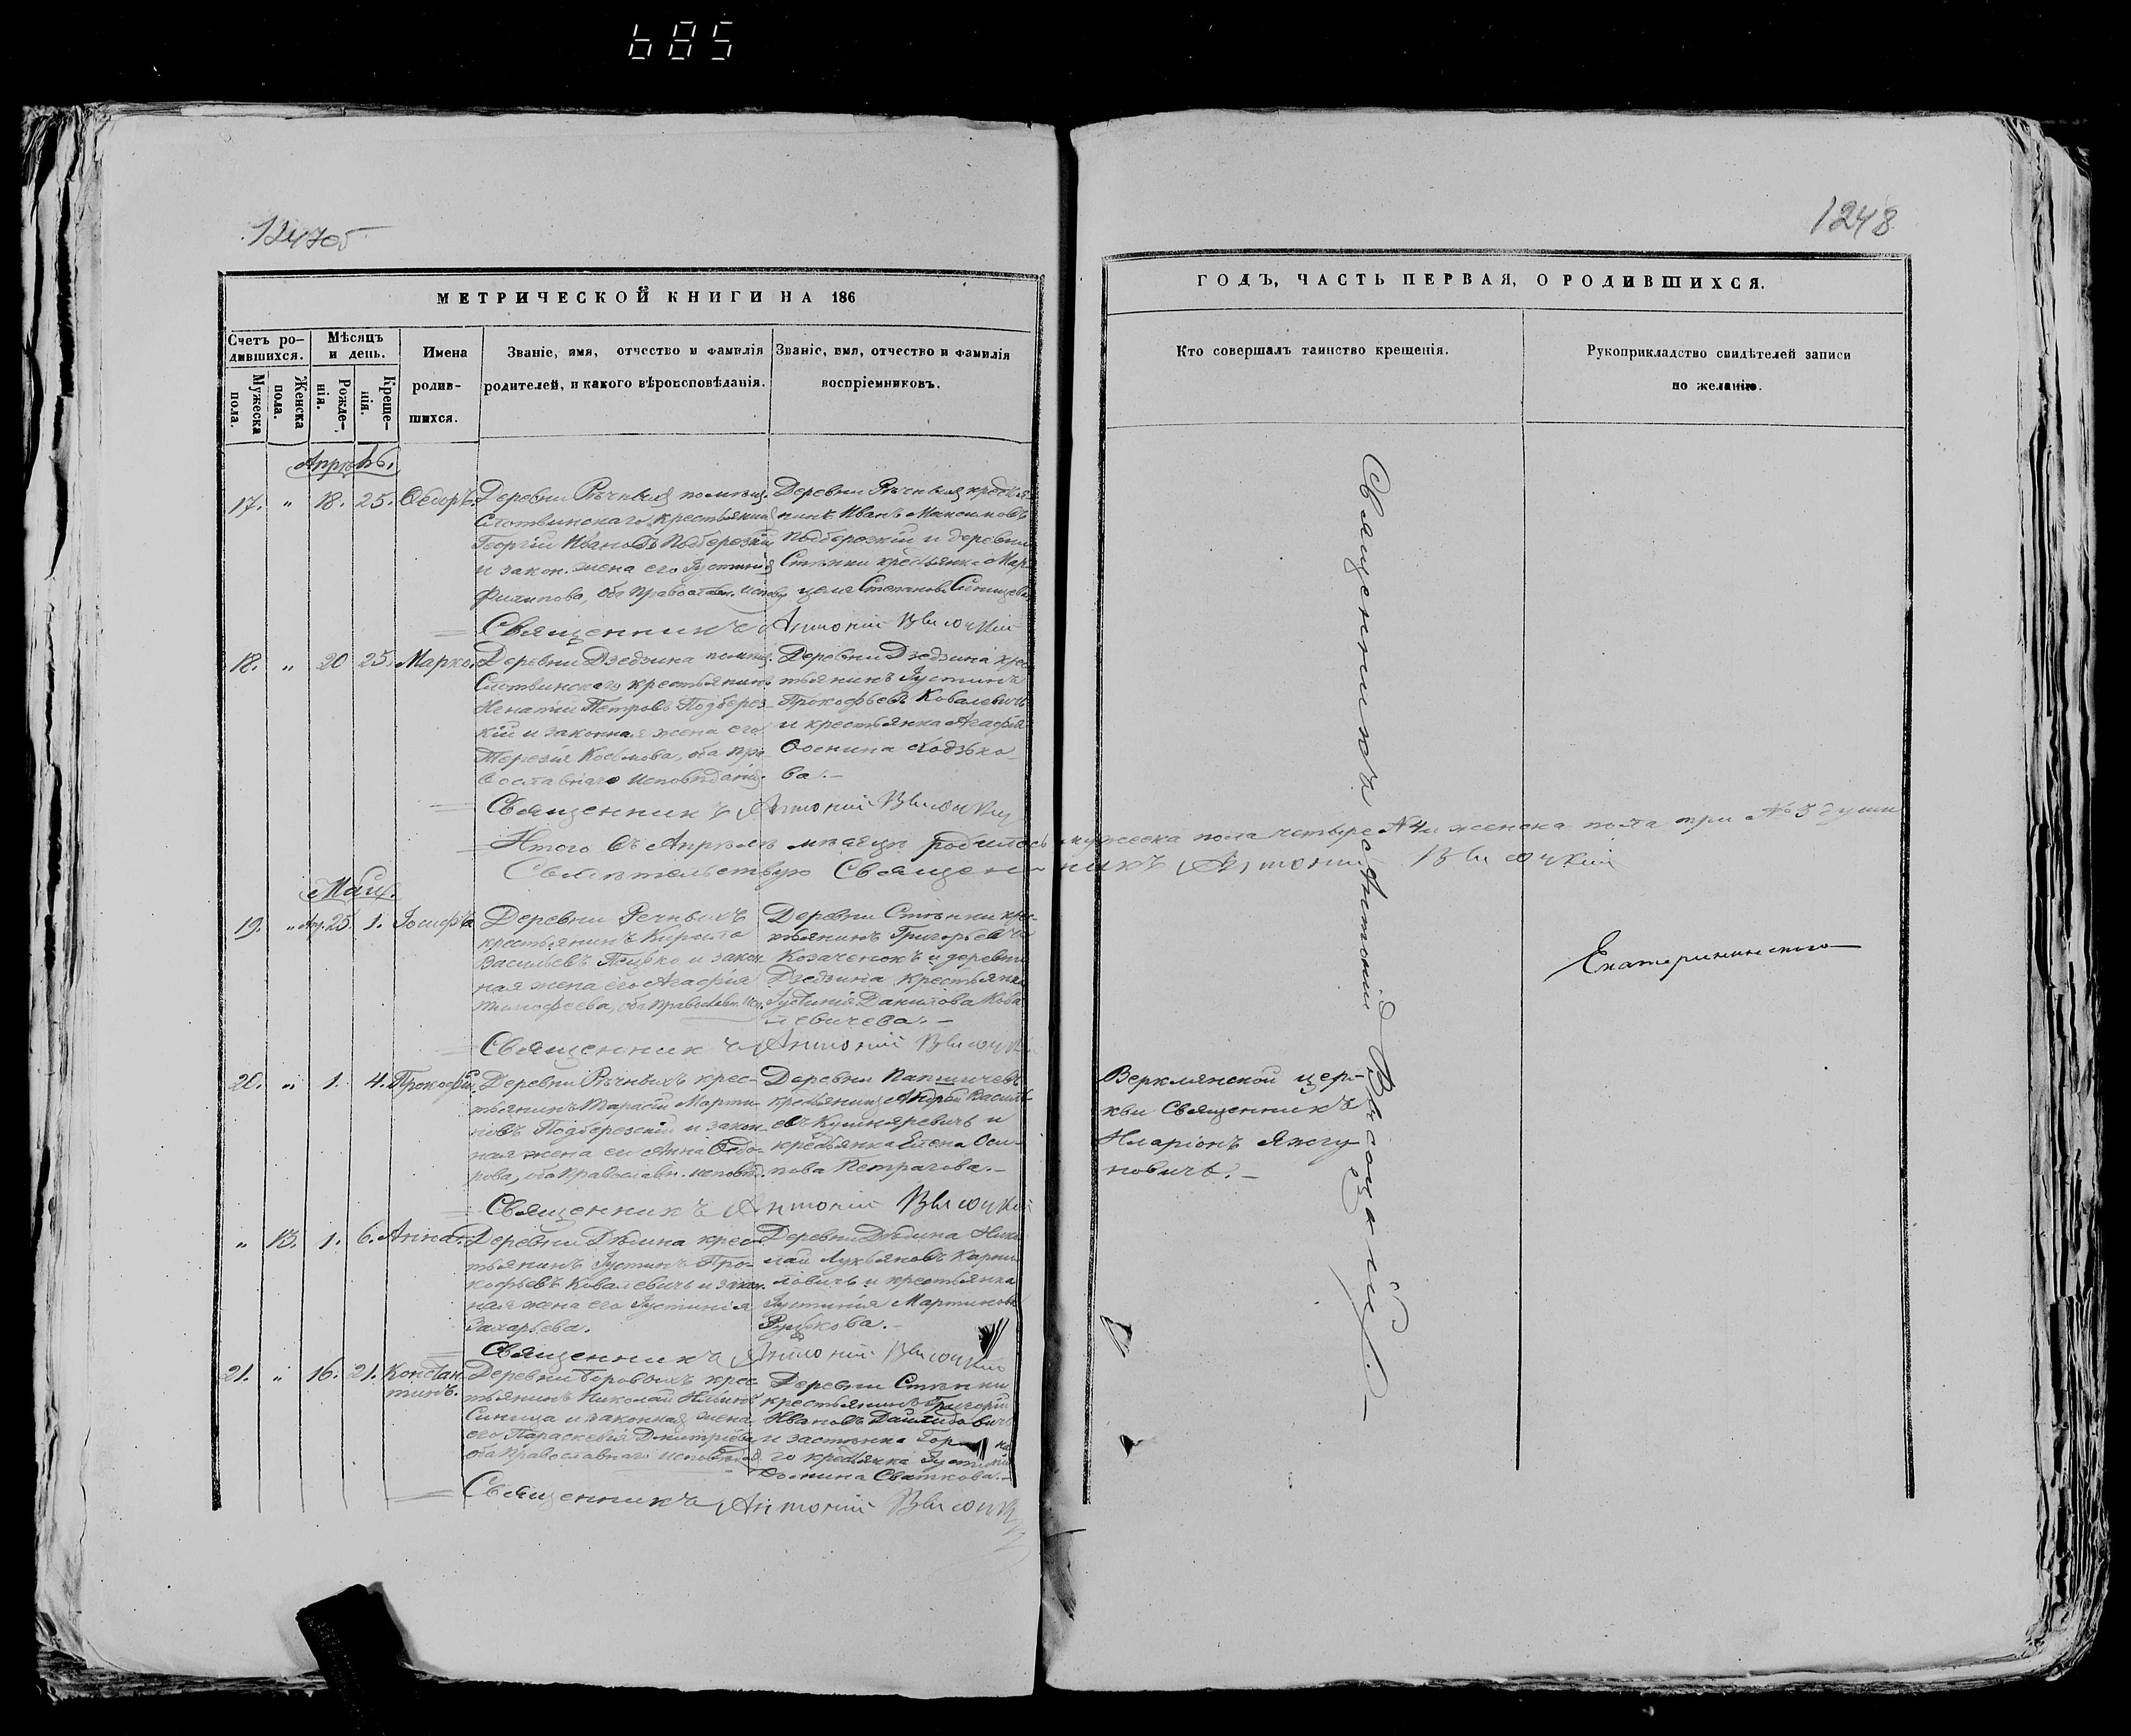 685
1247об
1248
МЕТРИЧЕСКОЙ КНИГИ НА 186
ГОДЪ, ЧАСТЬ ПЕРВАЯ, О РОДИВШИХСЯ.
Счетъ ро-
дившихся.
Мужеска
пола.
Женска
пола.
Мѣсяцъ
и день.
Рожде-
нія.
Креще-
нія.
Имена
родив-
шихся.
Званіе, имя, отчество и фамилія
родителей, и какого вѣроисповѣданія.
Званіе, имя, отчество и фамилія
воспріемниковъ.
Кто совершалъ таинство крещенія.
Рукоприкладство свидѣтелей записи
по желанію.
Апрель.
17. " 18. 25. Ѳедоръ.
Деревни Рѣчныхъ помѣщ.
Слотвинскаго крестьянинъ
Георгій Ивановъ Подберезкій
и закон. жена его Іустинія
Филипова, оба православ. испов.
Деревни Рѣчныхъ кресть-
нинъ Иванъ Максимовъ
Подберозкій и деревни
Стѣнки крестьянка Мар-
целя Степанова Синицева
Священникъ Антоній Высоцкій
18. " 20 25. Марко.
Деревни Дзедзина помѣщ.
Слотвинскаго крестьянинъ
Игнатій Петровъ Подберез-
кій и законная жена его
Терезія Косьмова, оба пра-
вославнаго исповѣданія.
Деревни Дзедзина крес-
тьянинъ Іустинъ
Прокофьевъ Ковалевичъ
и крестьянка Агафія
Ходзько-
ва.-
Священникъ Антоній Высоцкій
Итого въ Апрелѣ мѣсяцѣ родилось мужеска пола четыре №4 и женска пола три №3 души
Свидѣтельствую Священникъ Антоній Высоцкій
Май.
19. " Апр. 25. 1. Іосифъ
Деревни Речныхъ
крестьянинъ Кирила
Васильевъ и закон-
ная жена его Агафія
Тимофеева, оба православ. исп.
Деревни Стѣнки крес-
тьянинъ Григорьевъ
Козаченокъ и деревни
Дзедзина крестьянка
Іустинія Данилова Кова-
левичева.-
Священникъ Антоній Высоцк
20. " 1. 4. Прокофій.
Деревни Рѣчныхъ крес-
тьянинъ Тарасій Марти-
новъ Подберезскій и закон-
ная жена его Анна Ѳедо-
рова, оба православн. исповѣд.
Деревни Папшичевъ
крестьянинъ Андрей Василь-
евъ Кушняревичъ и
крестьянка Елена Оси-
пова Петрагова.-
Веркмянской цер-
кви Священникъ
Иларіонъ Янгу-
новичъ.-
Священникъ Антоній Высоцкій
" 13. 1. 6. Анна.
Деревни Дѣдина крес-
тьянинъ Іустинъ Про-
кофьевъ Ковалевичъ и закон-
ная жена его Іустинія
Захарьева.
Деревни Дѣдина Нико-
лай Лукьяновъ Карни-
ловичъ и крестьянка
Іустинія Мартинова
Рубкова.-
Священникъ Антоній Высоцкій
21. " 16. 21. Констан-
тинъ.
Деревни Боровыхъ крес-
тьянинъ Николай Ильинъ
Синица и законная жена
его Параскевія Дмитріева
оба православнаго исповѣд.
Деревни Стѣнки
крестьянинъ Григорій
Ивановъ Дайлидовичъ
и застѣнка
го крестьянка Іустинія
Сваткова.-
Священникъ Антоній Высоцкій
Священникъ Антоній Высоцкій.-
Екатерининскаго